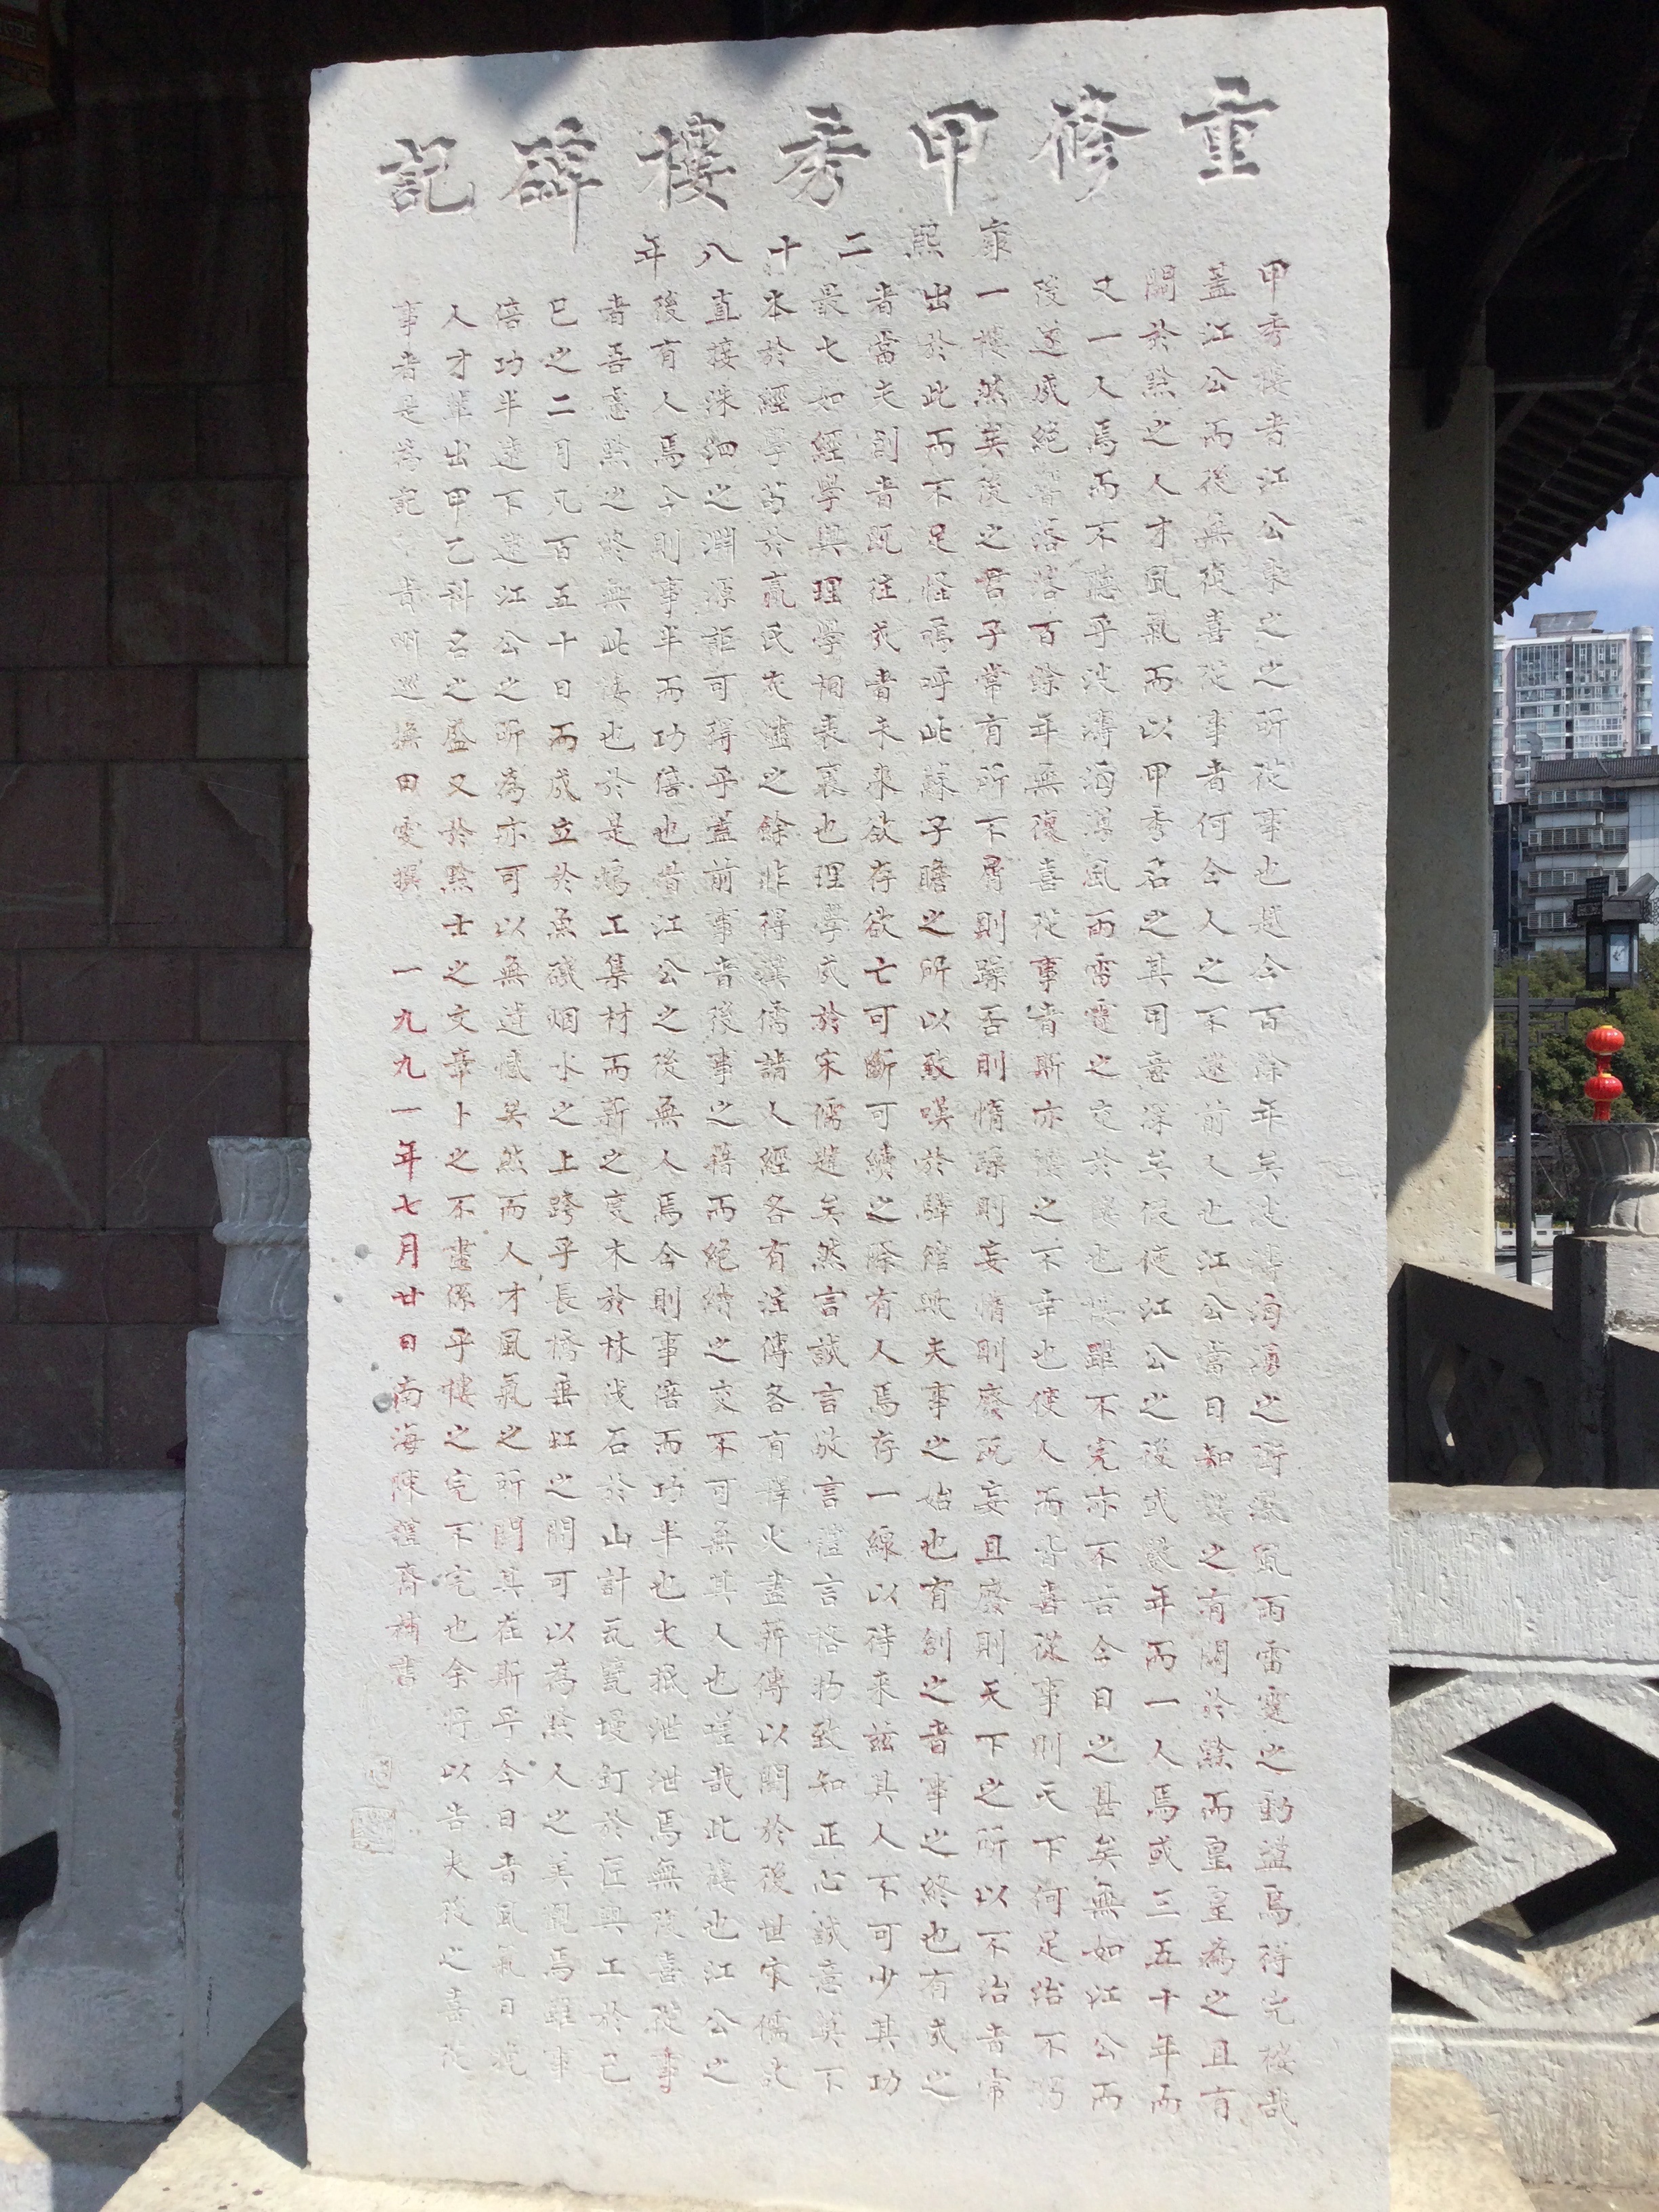 重修甲秀樓碑記
康熙二十八年
甲秀樓者江公東之之所從事也越今百餘年矣波濤洶湧之所激風雨雷霆之動盪焉得完樓哉
蓋江公而後無復喜從事者何今人之不逮前人也江公當日知樓之有關於黔而皇皇為之且有
關於黔之人才風氣而以甲秀名之其用意深矣假使江公之後或數年而一人焉或三五十年而
又一人焉而不聽乎波濤洶湧風雨雷霆之交於樓也樓雖不完亦不古今日之甚矣無如江公而
後遂成絕響落落百餘年無復喜從事者斯亦樓之不幸也使人而皆喜從事則天下何足治不
一樓然矣後之君子常有所不屑則躁否則惰躁則妄惰則廢既妄且廢則天下之所以不治者常
出於此而不足怪嗚呼此蘇子瞻之所以致嘆於驛館歟夫事之始也有創之者事之終也有成之
者當夫創者既往成者未來欲存欲亡可斷可續之際有人焉存一線以待來茲其人不可少其功
最七如經學與理學相表裏也理學成於宋儒遲矣然言誠言敬言謹言格物致知正心誠意莫不
本於經學苟於嬴氏灰燼之餘非得漢儒諸人經各有注傳各有釋火盡薪傳以開於後世宋儒欲
直接洙泗之淵源詎可得乎蓋前事者後事之藉而絕續之交不可無其人也嗟哉此樓也江公之
後有人焉今則事半而功倍也昔江公之後無人焉今則事倍而功半也大抵泄泄焉無復喜從事
者吾慮黔之終無此樓也於是鳩工集材而新之度木於林伐石於山計瓦甓墁釘於匠興工於己
巳之二月凡百五十日而成立於魚磯烟水之上跨乎長橋垂虹之間可以為黔人之美觀焉雖事
倍功半遠不逮江公之所為亦可以無遺憾矣然而人才風氣之所關其在斯乎今日者風氣日見
人才輩出甲乙科名之盛又於黔士之文章卜之不盡係乎樓之完不完也余將以告夫後之喜從
事者是為記 貴州巡撫田雯撰 一九九一年七月廿日南海陳謹齋補書